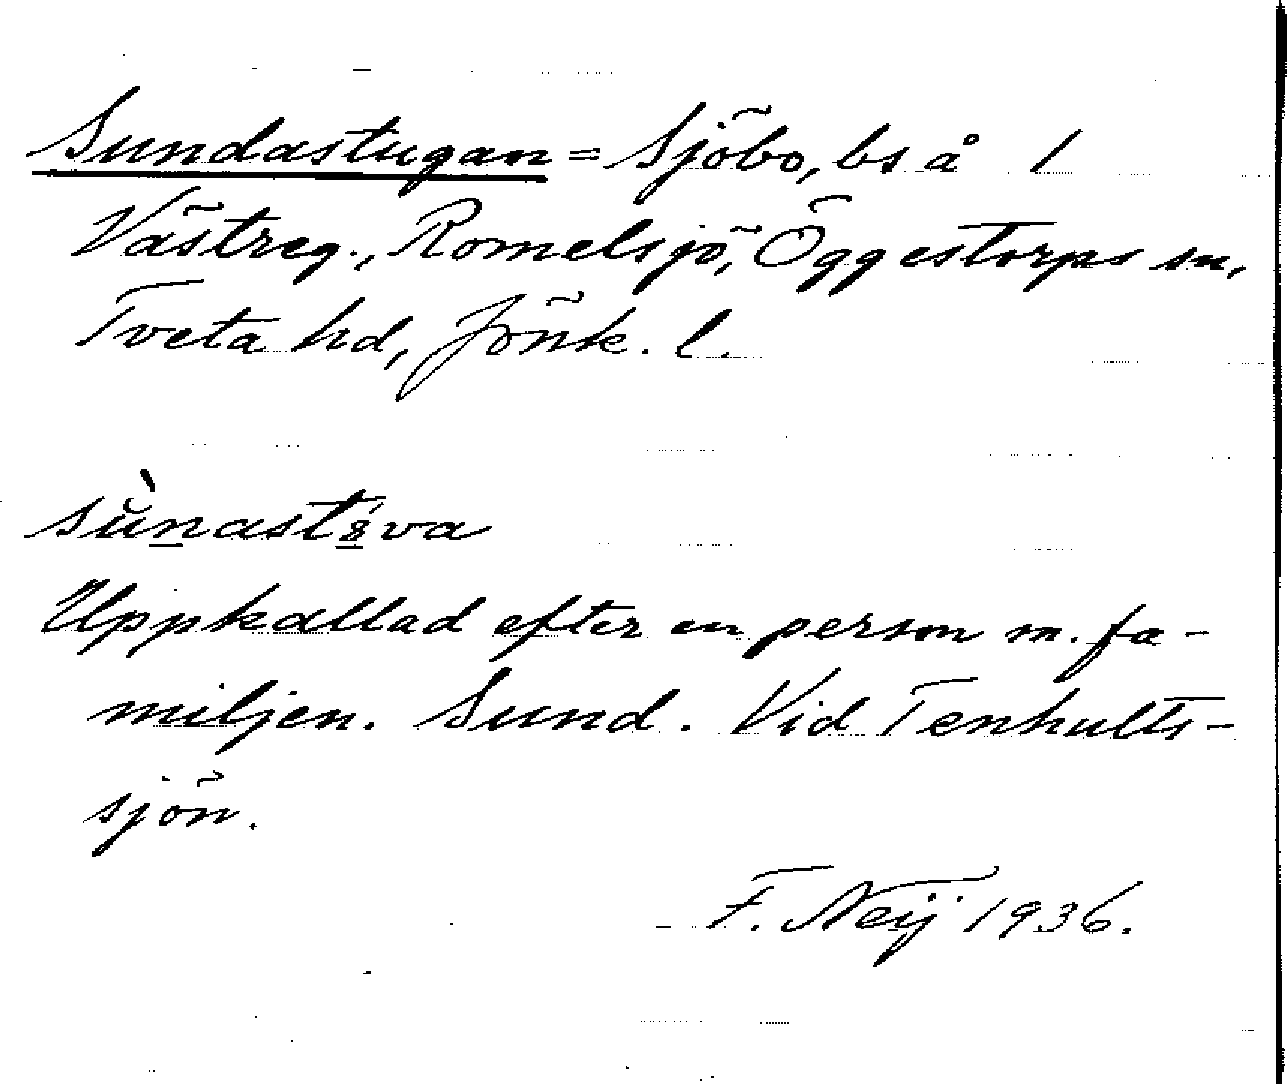 Sundastugan = Sjöbo, bs å 1
Västreg., Romelsjö, Öggestorps sn,
Tveta hd, Jönk. l.
Uppkallad efter en person m. fa-
miljen. Sund. Vid Tenhults-
sjön.
F. Neij 1936.